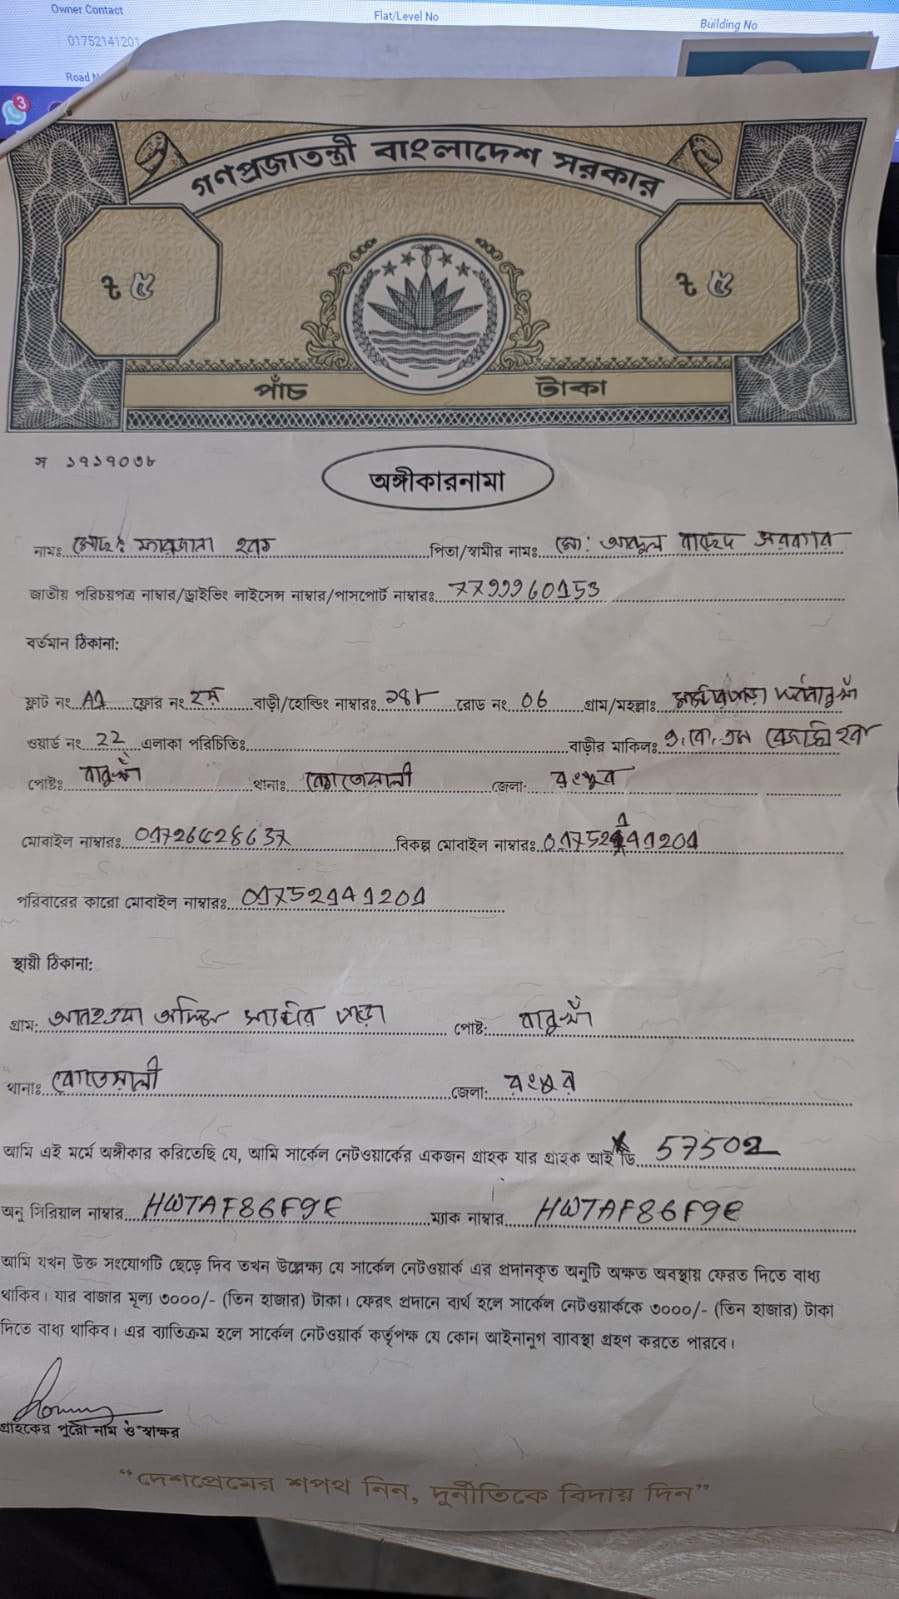 Owner Contact Flat/Level No Building No
01752141201
Road
3
গণপ্রজাতন্ত্রী বাংলাদেশ সরকার
৳ ৫ ৳ ৫
পাঁচ টাকা
স ১৭১৭০৩৮
অঙ্গীকারনামা
নামঃ মোছাঃ ফারজানা হক পিতা/স্বামীর নামঃ মোঃ আব্দুল বাছেদ সরকার
জাতীয় পরিচয়পত্র নাম্বার/ড্রাইভিং লাইসেন্স নাম্বার/পাসপোর্ট নাম্বারঃ
বর্তমান ঠিকানা:
ফ্লাট নং A1 ফ্লোর নং ২য় বাড়ী/হোল্ডিং নাম্বারঃ রোড নং 06 গ্রাম/মহল্লাঃ
ওয়ার্ড নং 22 এলাকা পরিচিতিঃ বাড়ীর মালিকঃ
পোষ্টঃ থানাঃ কোতোয়ালী জেলা: রংপুর
মোবাইল নাম্বারঃ বিকল্প মোবাইল নাম্বারঃ 01752141201
পরিবারের কারো মোবাইল নাম্বারঃ 01752141201
স্থায়ী ঠিকানা:
গ্রাম: পোষ্ট:
থানাঃ কোতয়ালী জেলা: রংপুর
আমি এই মর্মে অঙ্গীকার করিতেছি যে, আমি সার্কেল নেটওয়ার্কের একজন গ্রাহক যার গ্রাহক আই ডি 57502
অনু সিরিয়াল নাম্বার HWTAF86F9E ম্যাক নাম্বার HWTAF86F9E
আমি যখন উক্ত সংযোগটি ছেড়ে দিব তখন উল্লেক্ষ্য যে সার্কেল নেটওয়ার্ক এর প্রদানকৃত অনুটি অক্ষত অবস্থায় ফেরত দিতে বাধ্য
থাকিব। যার বাজার মূল্য ৩০০০/- (তিন হাজার) টাকা। ফেরৎ প্রদানে ব্যর্থ হলে সার্কেল নেটওয়ার্ককে ৩০০০/- (তিন হাজার) টাকা
দিতে বাধ্য থাকিব। এর ব্যতিক্রম হলে সার্কেল নেটওয়ার্ক কর্তৃপক্ষ যে কোন আইনানুগ ব্যবস্থা গ্রহণ করতে পারবে।
গ্রাহকের পুরো নাম ও স্বাক্ষর
“দেশপ্রেমের শপথ নিন, দুর্নীতিকে বিদায় দিন”